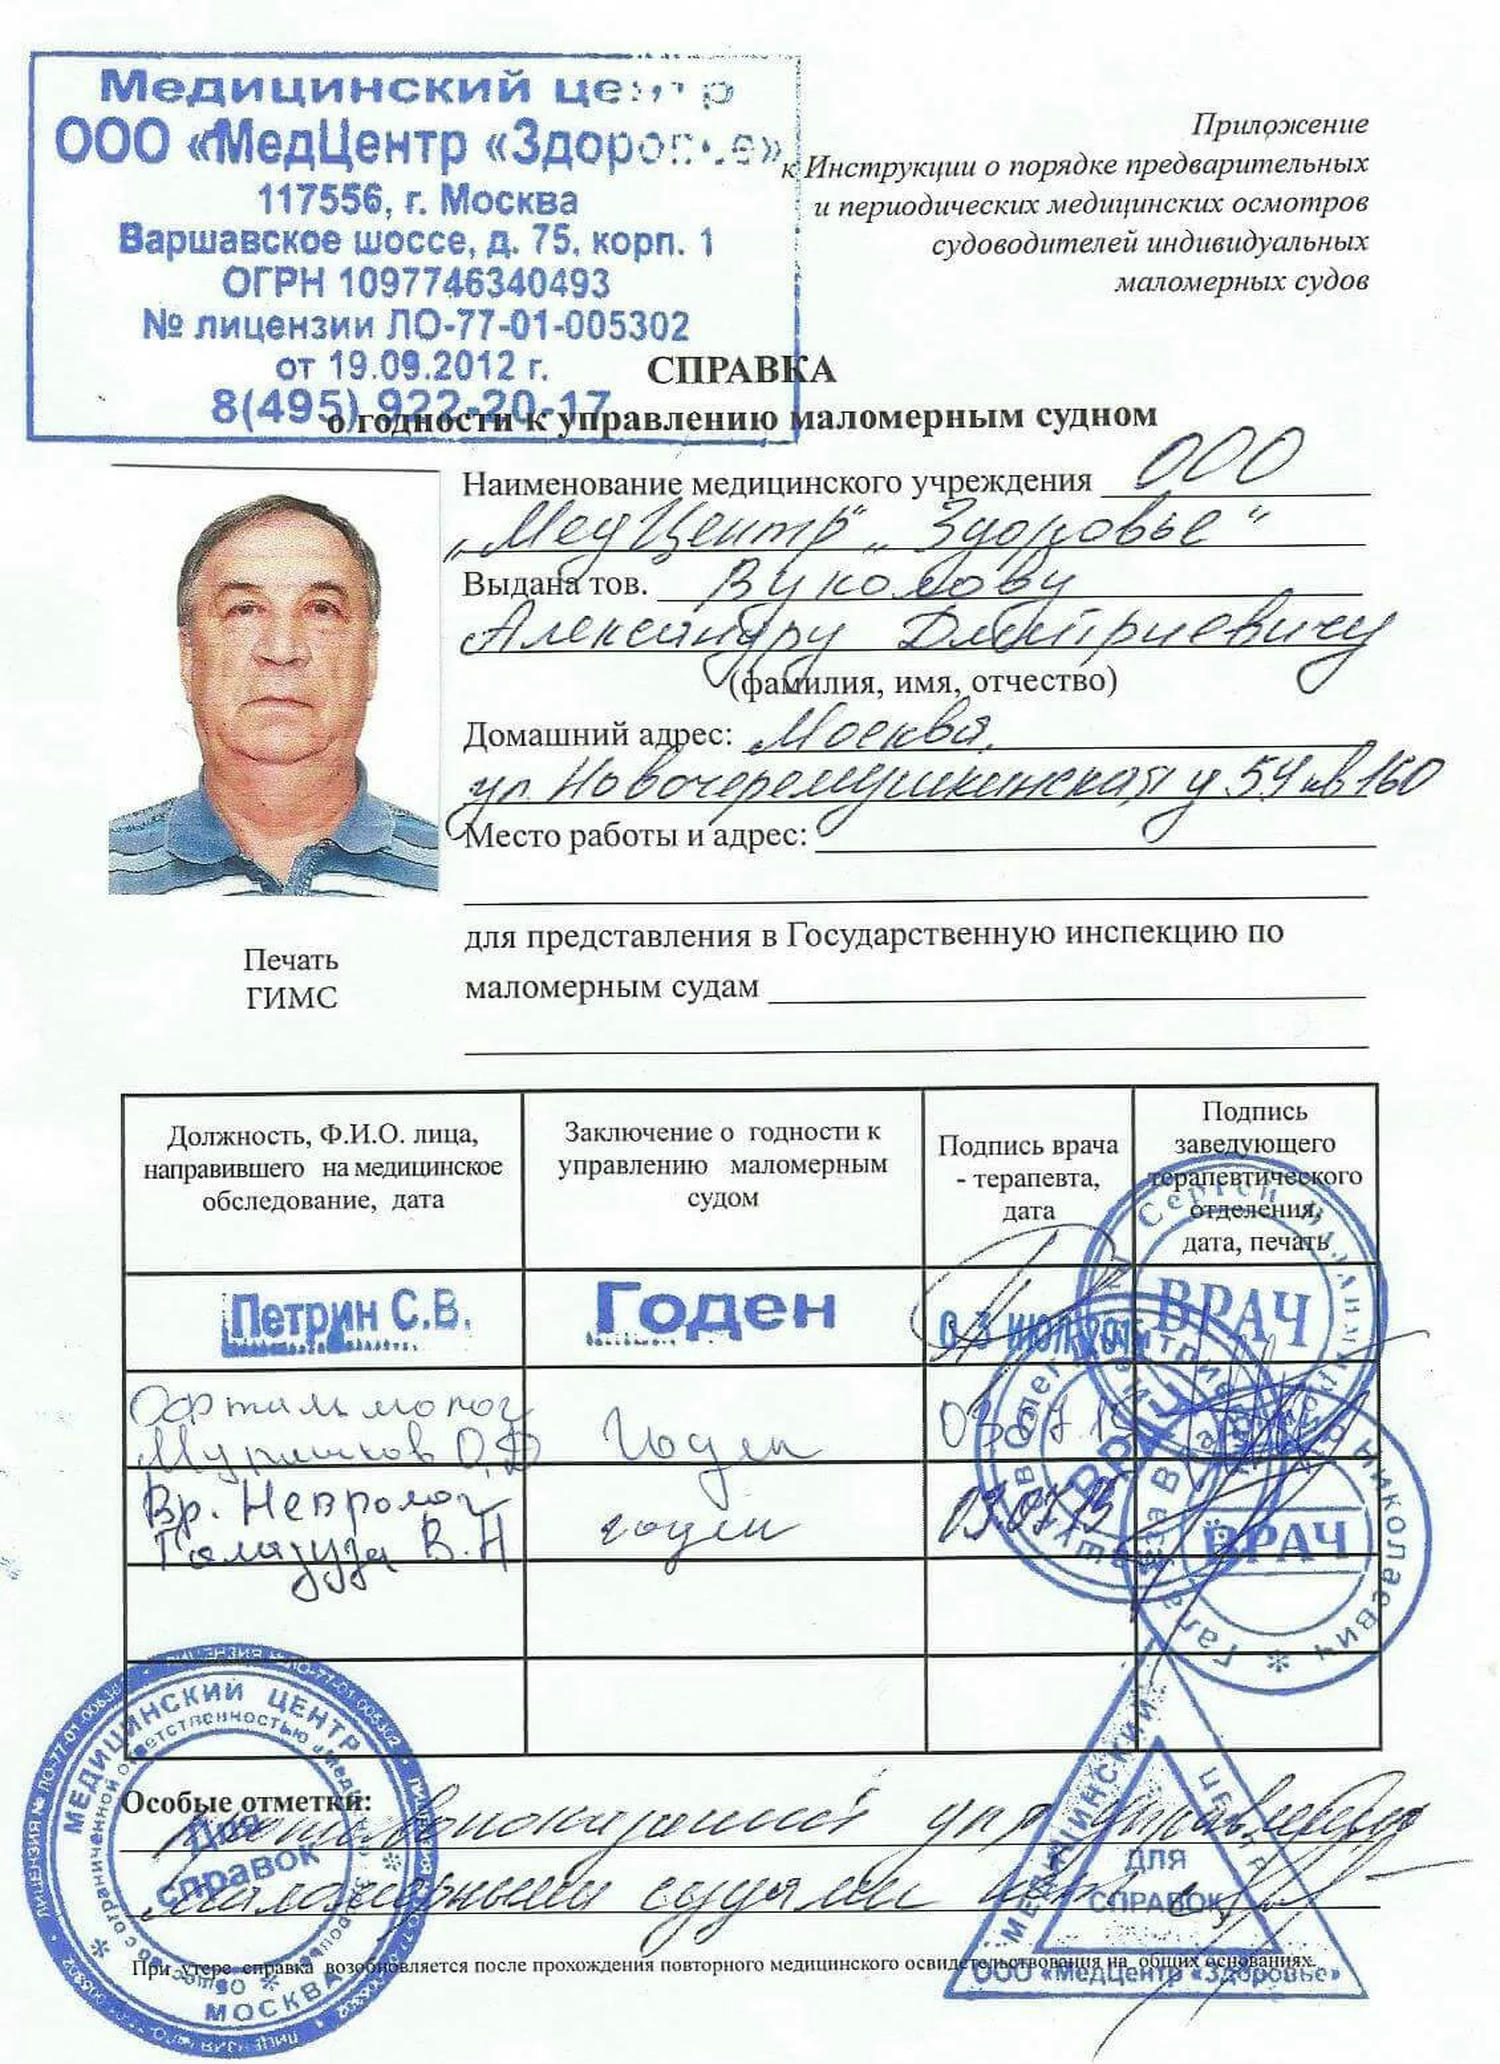 Медицинский центр
ООО «МедЦентр «Здоровье»
117556, г. Москва
Варшавское шоссе, д. 75, корп. 1
ОГРН 1097746340493
№ лицензии ЛО-77-01-005302
от 19.09.2012 г.
8(495) 922-20-17
Приложение
к Инструкции о порядке предварительных
и периодических медицинских осмотров
судоводителей индивидуальных
маломерных судов
СПРАВКА
о годности к управлению маломерным судном
Наименование медицинского учреждения ООО
„МедЦентр" „Здоровье"
Выдана тов. Вуколову
Александру Дмитриевичу
(фамилия, имя, отчество)
Домашний адрес: Москва,
ул. Новочеремушкинская д 59 кв 160
Место работы и адрес:
для представления в Государственную инспекцию по
маломерным судам
Печать
ГИМС
Должность, Ф.И.О. лица,
направившего на медицинское
обследование, дата
Заключение о годности к
управлению маломерным
судом
Подпись врача
- терапевта,
дата
Подпись
заведующего
терапевтического
отделения,
дата, печать
Петрин С.В.
Годен
03 ИЮЛ 201
Офтальмолог
О.Д
Годен
03 07 15
Вр. Невролог
Галагуза В.Н
годен
03.07.15
ВРАЧ
ВРАЧ
ВРАЧ
Галагуза Владимир Николаевич
МЕДИЦИНСКИЙ ЦЕНТР
Для
справок
МОСКВА
Особые отметки:
Противопоказаний упр управлению
маломерными судами нет
МЕДИЦИНСКИЙ ЦЕНТР
ДЛЯ
СПРАВОК
ООО «МедЦентр «Здоровье»
При утере справка возобновляется после прохождения повторного медицинского освидетельствования на общих основаниях.